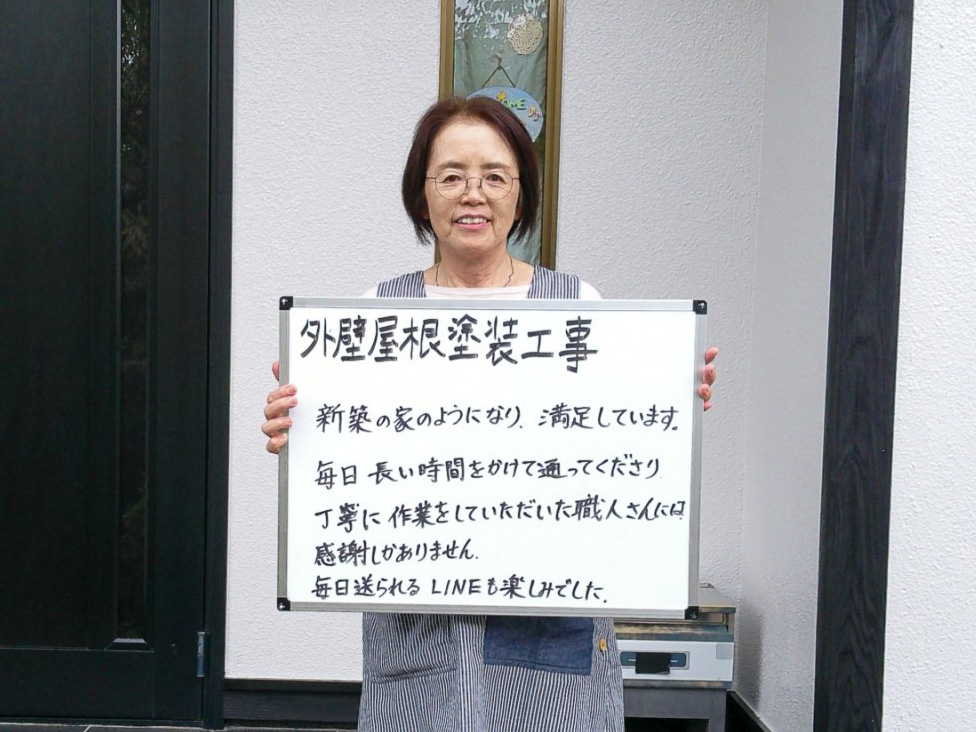 外壁屋根塗装工事
新築の家のようになり、満足しています。
毎日 長い時間をかけて通ってくださり
丁寧に 作業をしていただいた職人さんには
感謝しかありません。
毎日送られる LINEも楽しみでした。